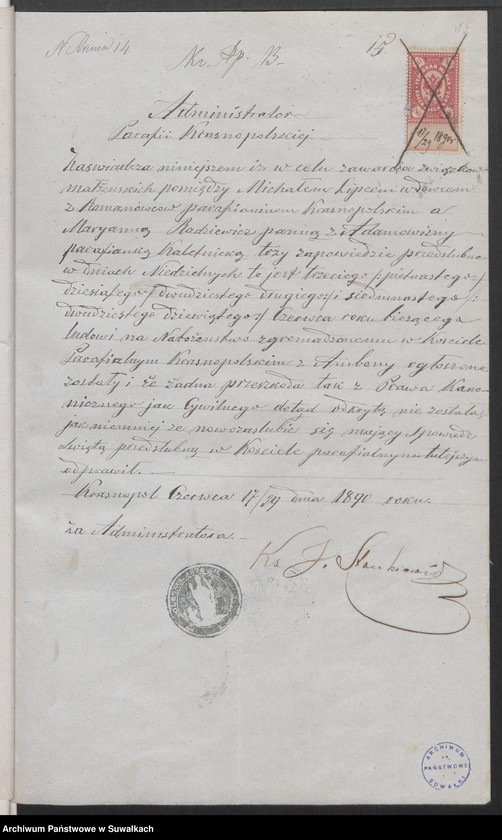 N Akta 14.
Nr. Ap. B.
15
17/29 1890r
Administrator
Parafii Krasnopolskiej
Zaświadcza niniejszem iż w celu zawarcia związków
małżeńskich pomiędzy Michałem Lipcem wdowcem
z Romanowców parafianinem Krasnopolskim a
Maryanną Radziewicz panną z Adamowizny
parafianką Kaletnicką trzy zapowiedzie przedślubne
w dniach Niedzielnych to jest trzeciego /:piętnastego:/
dziesiątego /:dwudziestego drugiego:/ i siedmnastego /:
dwudziestego dziewiątego:/ Czerwca roku bieżącego
ludowi na Nabożeństwo zgromadzonemu w Kościele
Parafialnym Krasnopolskim z Ambony ogłoszone
zostały i że żadna przeszkoda tak z Prawa Kano-
nicznego jak Cywilnego dotąd odkrytą nie została,
jak niemniej że nowozaślubić się mający spowiedź
świętą przedślubną w Kościele parafialnym tutejszym
odprawił.
Krasnopol Czerwca 17/29 dnia 1890 roku.
za Administratora.
Ks J. Stankiewicz
ARCHIWUM
PAŃSTWOWE
SUWAŁKI
Archiwum Państwowe w Suwałkach